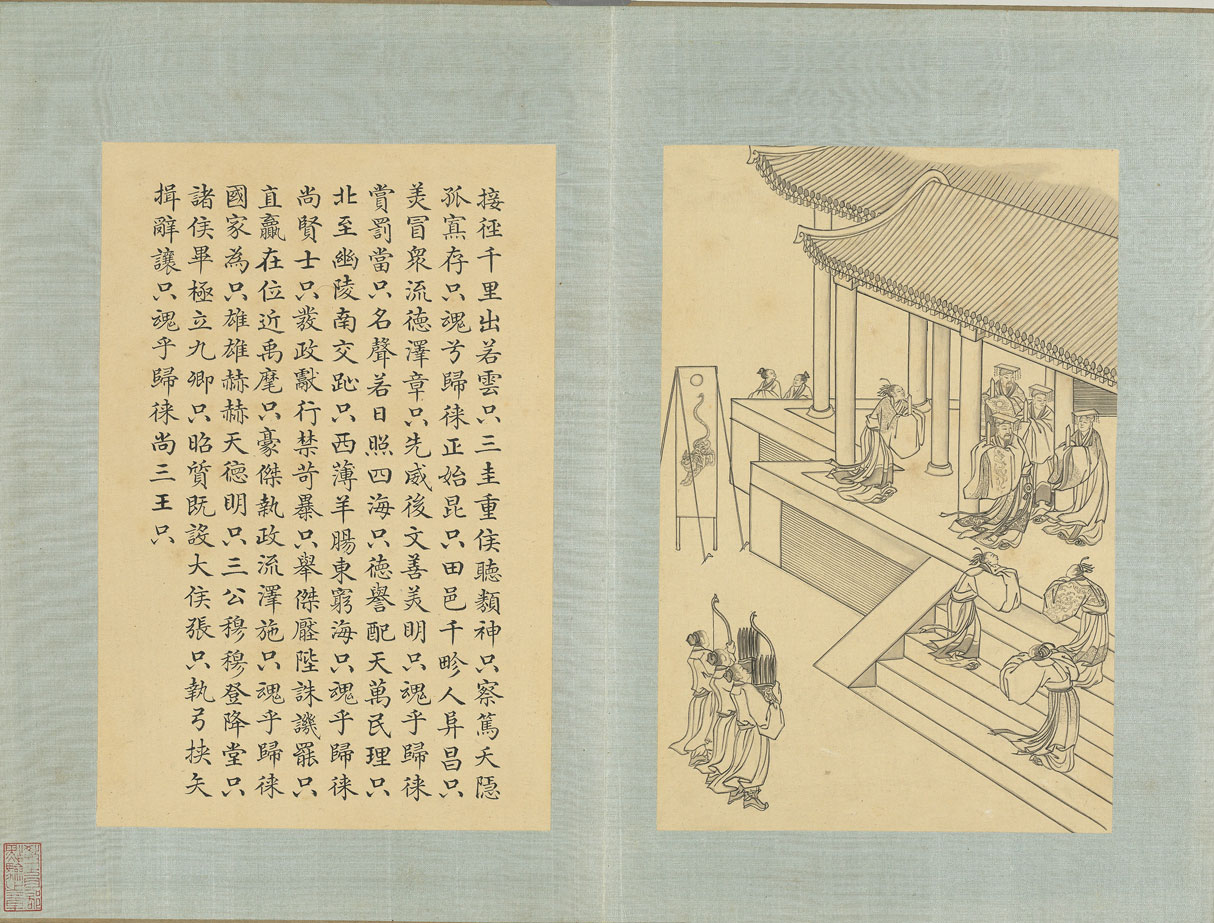 接徑千里出若雲只三圭重侯聽類神只察篤夭隱
孤寡存只魂兮歸徠正始昆只田邑千畛人阜昌只
美冒衆流德澤章只先威後文善美明只魂乎歸徠
賞罰當只名聲若日照四海只德譽配天萬民理只
北至幽陵南交趾只西薄羊腸東窮海只魂乎歸徠
尚賢士只發政獻行禁苛暴只舉傑壓陛誅譏罷只
直贏在位近禹麾只豪傑執政流澤施只魂乎歸徠
國家為只雄雄赫赫天德明只三公穆穆登降堂只
諸侯畢極立九卿只昭質既設大侯張只執弓挾矢
揖辭讓只魂乎歸徠尚三王只
教育部
點驗之章